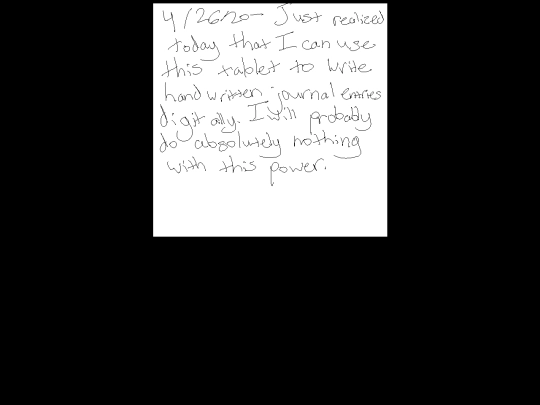 4/26/20- Just realized
today that I can use
this tablet to write
hand written journal entries
digitally. I will probably
do absolutely nothing
with this power.